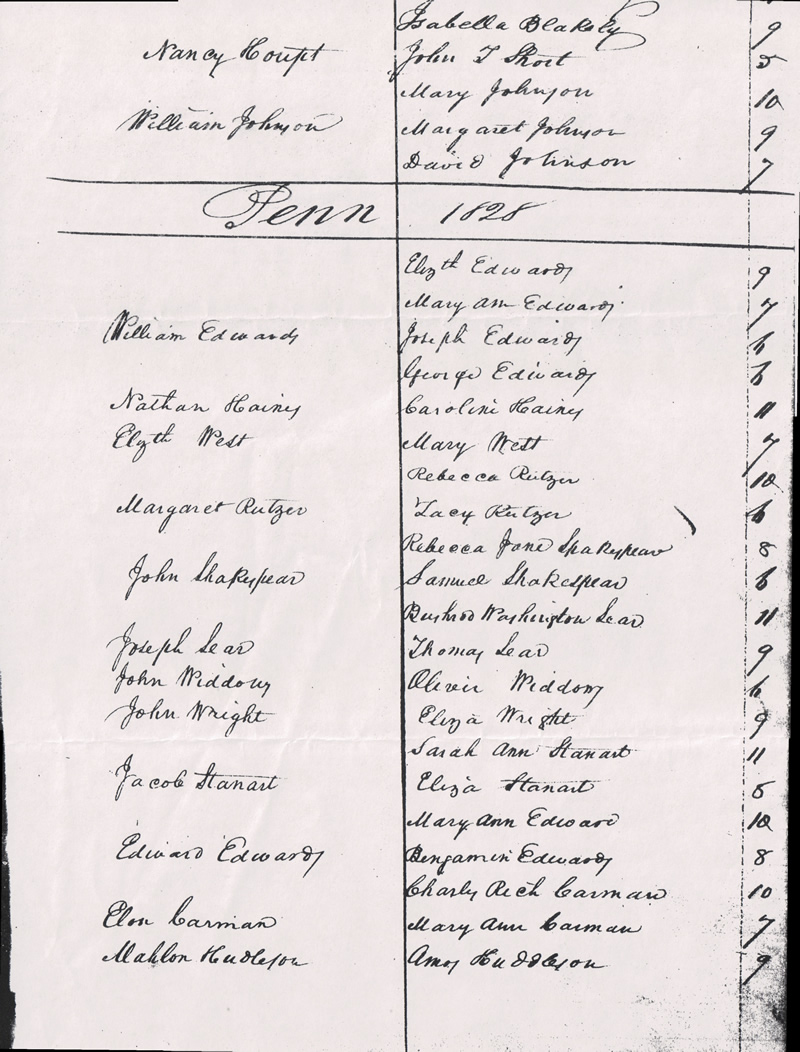 Isabella Blakely 9
Nancy Houpt John T Short 5
Mary Johnson 10
William Johnson Margaret Johnson 9
David Johnson 7
Penn 1828
Elizth Edwards 9
Mary Ann Edwards 7
William Edwards Joseph Edwards 6
George Edwards 6
Nathan Haines Caroline Haines 11
Elizth West Mary West 7
Rebecca Rutzer 10
Margaret Rutzer Lacy Rutzer 6
Rebecca Jane Shakespear 8
John Shakespear Samuel Shakespear 6
Bushrod Washington Sear 11
Joseph Sear Thomas Sear 9
John Widdows Olivir Widdows 6
John Wright Eliza Wright 9
Sarah Ann Stanart 11
Jacob Stanart Eliza Stanart 8
Mary Ann Edward 10
Edward Edwards Bengamin Edwards 8
Charles Rich Carman 10
Elon Carman Mary Ann Carman 7
Mahlon Hudleson Amos Huddleson 9